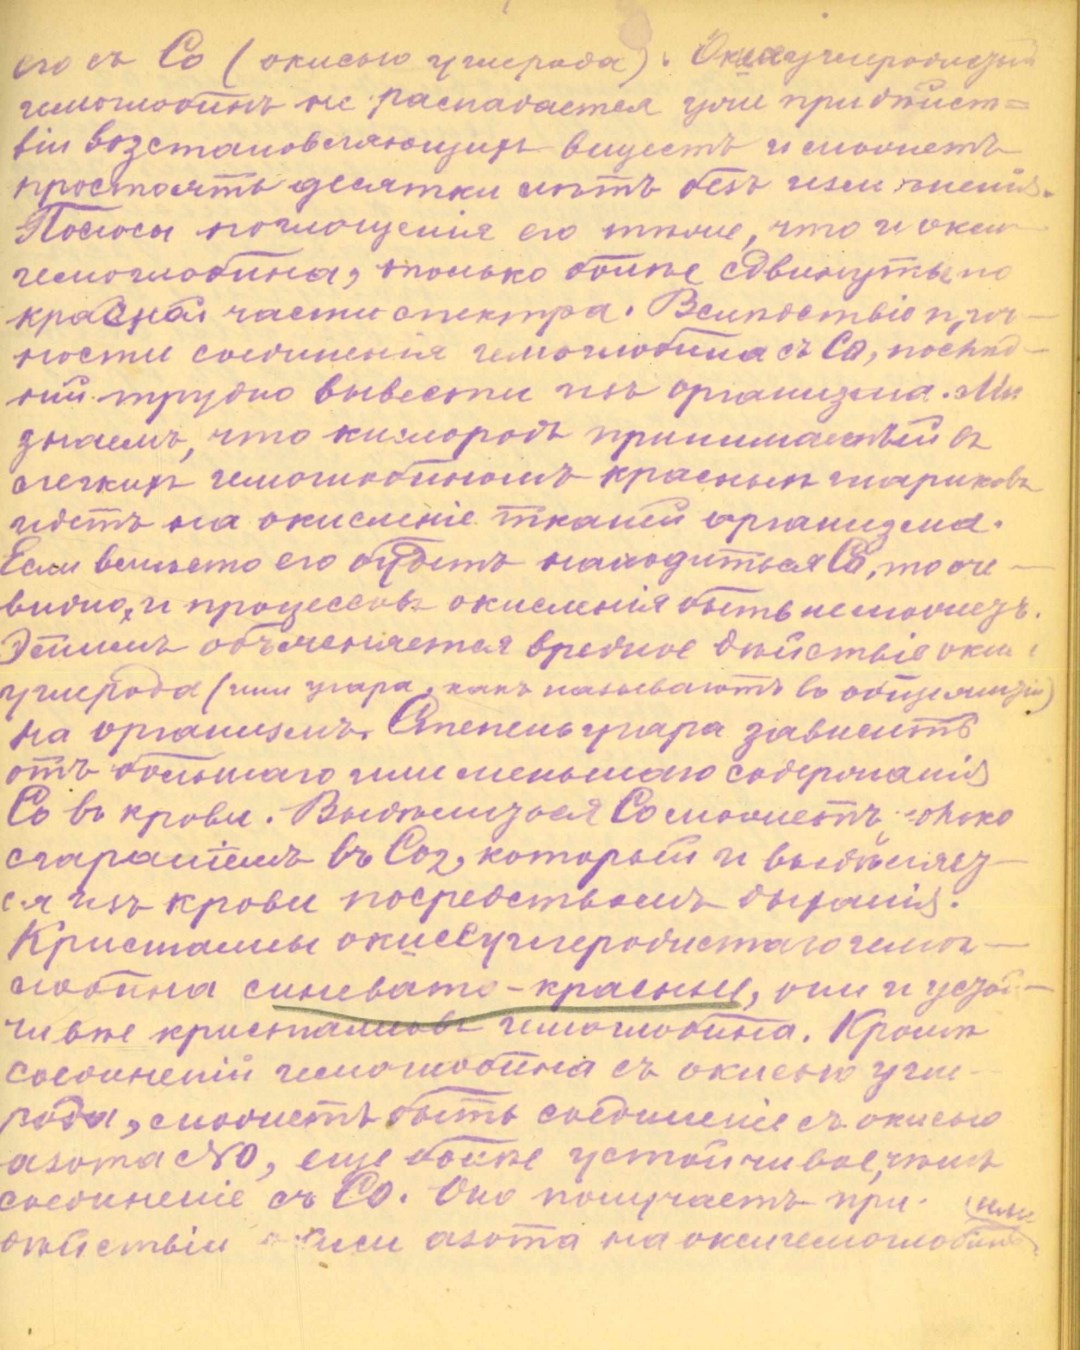 его съ Co (окисью углерода). Окисеуглеродистый
гемоглобинъ не распадается уже при дѣйст=
віи возстановляющихъ веществъ и можетъ
простоять десятки лѣтъ безъ измѣненія.
Полосы поглощенія его тѣже, что и окси
гемоглобина, только болѣе сдвинуты по
красной части спектра. Вслѣдствіе проч—
ности соединенія гемоглобина съ Co, послѣд—
ній трудно вывести изъ организма. Мы
знаемъ, что кислородъ принимаемый въ
легкихъ гемоглобиномъ красныхъ шариковъ
идетъ на окисленіе тканей организма.
Если вмѣсто его будетъ находиться Co, то оче—
видно, и процессовъ окисленія быть не можетъ.
Этимъ объясняется вредное дѣйствіе окиси
углерода (или угара, какъ называютъ въ общежитіи)
на организмъ. Степень угара зависитъ
отъ большаго или меньшаго содержанія
Co въ крови. Выдѣлиться Co можетъ только
сгараніемъ въ Co2, который и выдѣляет—
ся изъ крови посредствомъ дыханія.
Кристаллы окисеуглеродистаго гемог—
лобина синевато-красные, они и устой—
чивѣе кристалловъ гемоглобина. Кромѣ
соединеній гемоглобина съ окисью угле—
рода, можетъ быть соединеніе съ окисью
азота NO, еще болѣе устойчивое, чѣмъ
соединеніе съ CO. Оно получается при
дѣйствіи окиси азота на оксигемоглобинъ
(или